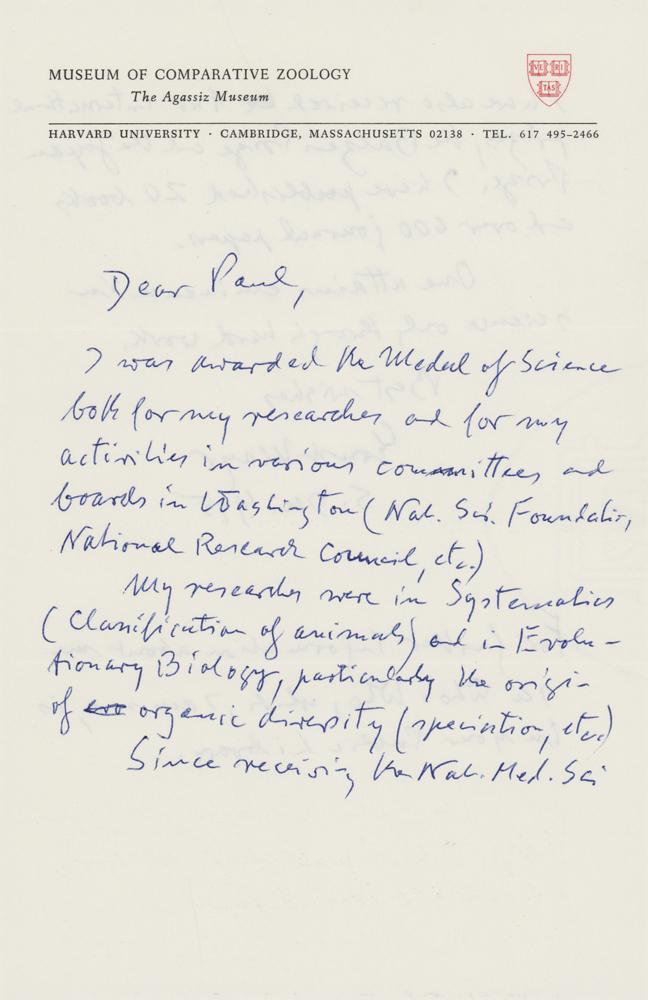 MUSEUM OF COMPARATIVE ZOOLOGY
The Agassiz Museum
VE RI
TAS
HARVARD UNIVERSITY · CAMBRIDGE, MASSACHUSETTS 02138 · TEL. 617 495-2466
Dear Paul,
I was awarded the Medal of Science
both for my researches and for my
activities in various committees and
boards in Washington (Nat. Sci. Foundation,
National Research Council, etc.)
My researches were in Systematics
(Classification of animals) and in Evolu-
tionary Biology, particularly the origin
of evo organic diversity (speciation, etc.)
Since receiving the Nat. Med. Sci